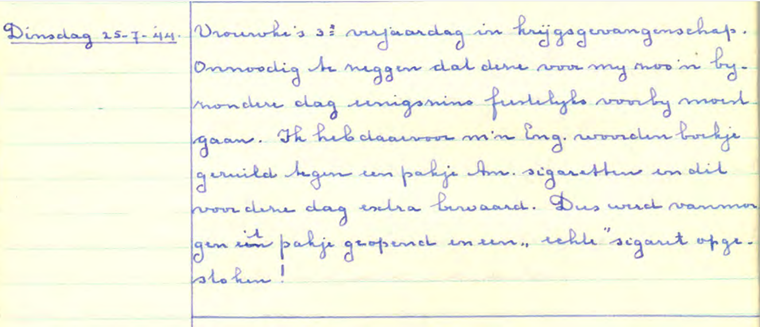 Dinsdag 25-7-'44. Vrouwke's 3e verjaardag in krijgsgevangenschap.
Onnoodig te zeggen dat deze voor my zoo'n by-
zondere dag eenigszins feestelyks voorby moest
gaan. Ik heb daarvoor m'n Eng. woordenboekje
geruild tegen een pakje Am. sigaretten en dit
voor deze dag extra bewaard. Dus werd vanmor
gen dit pakje geopend en een „echte" sigaret opge-
stoken!